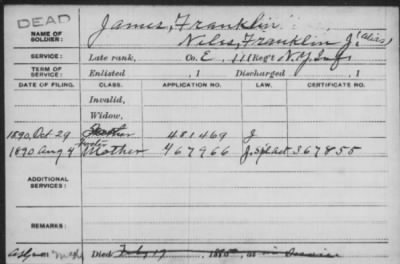 DEAD
NAME OF SOLDIER: James, Franklin
Niles, Franklin J. (alias)
SERVICE: Late rank, Co. E, 111 Reg't N.Y. Inf
TERM OF SERVICE: Enlisted , 1 Discharged , 1
DATE OF FILING. CLASS. APPLICATION NO. LAW. CERTIFICATE NO.
Invalid,
Widow,
1890 Oct 29 481469 J
1890 Aug 4 Mother 467966 367855
ADDITIONAL SERVICES:
REMARKS:
Died Feby 17 , 1865, at in Service